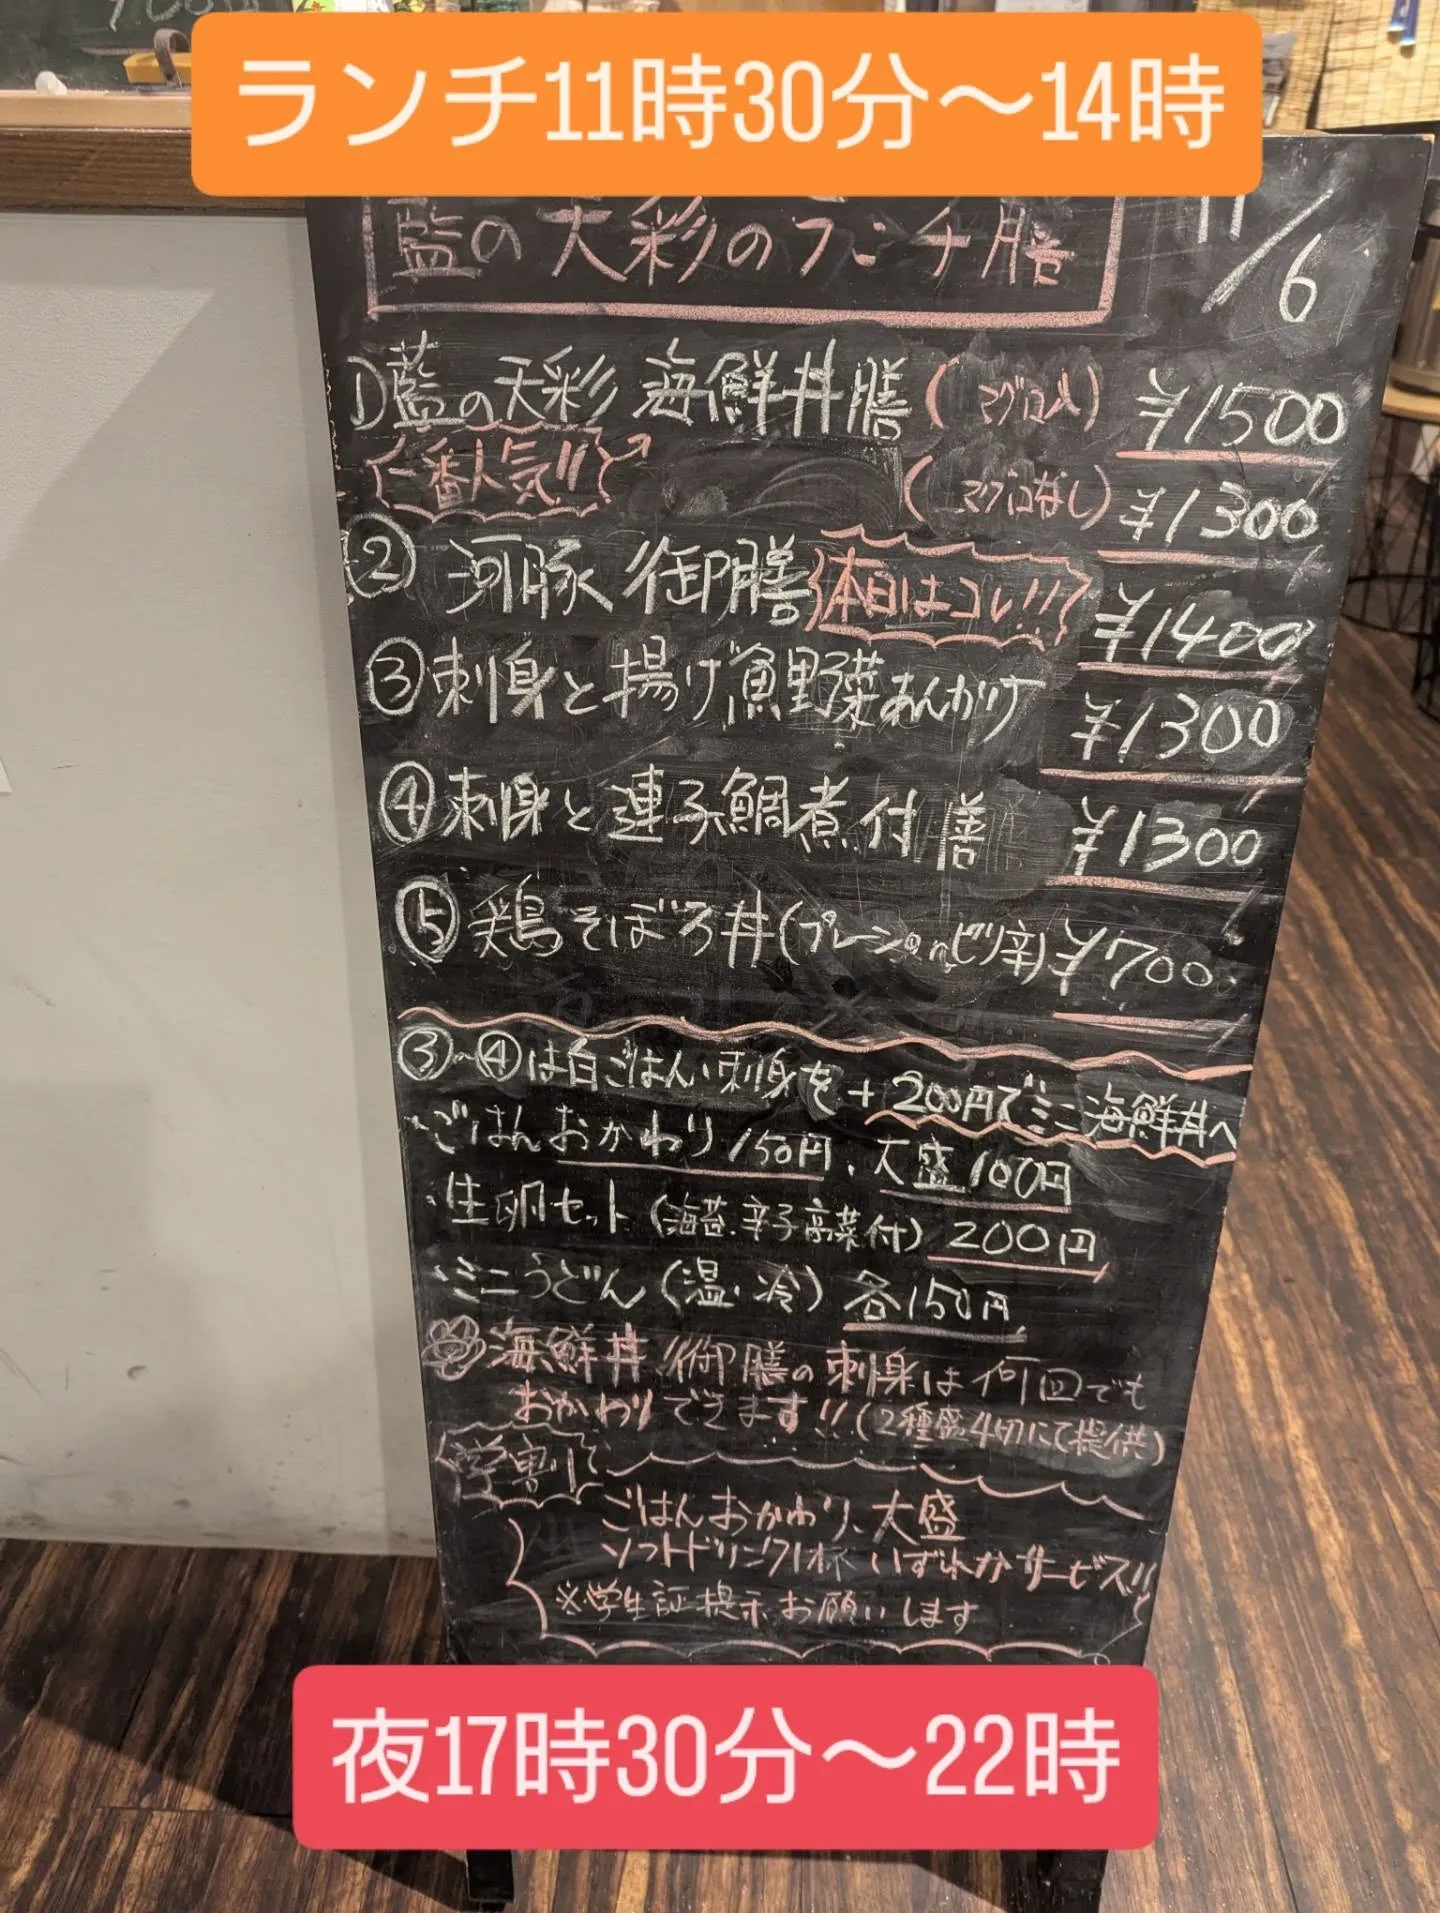 ランチ11時30分〜14時
藍の天彩のランチ膳
11/6
①藍の天彩 海鮮丼膳(マグロ入) ¥1500
一番人気!! (マグロなし) ¥1300
② 河豚御膳 本日はコレ!!! ¥1400
③刺身と揚げ魚野菜あんかけ ¥1300
④刺身と連子鯛煮付膳 ¥1300
⑤鶏そぼろ丼(プレーンorピリ辛) ¥700
③〜④は白ごはん、刺身を+200円でミニ海鮮丼へ
・ごはんおかわり150円、大盛100円
・生卵セット(海苔、辛子高菜付) 200円
・ミニうどん(温・冷) 各150円
海鮮丼、御膳の刺身は何回でも
おかわりできます!!(2種盛4切にて提供)
学割
ごはんおかわり、大盛
ソフトドリンク1杯 いずれかサービス!!
※学生証提示お願いします
夜17時30分〜22時